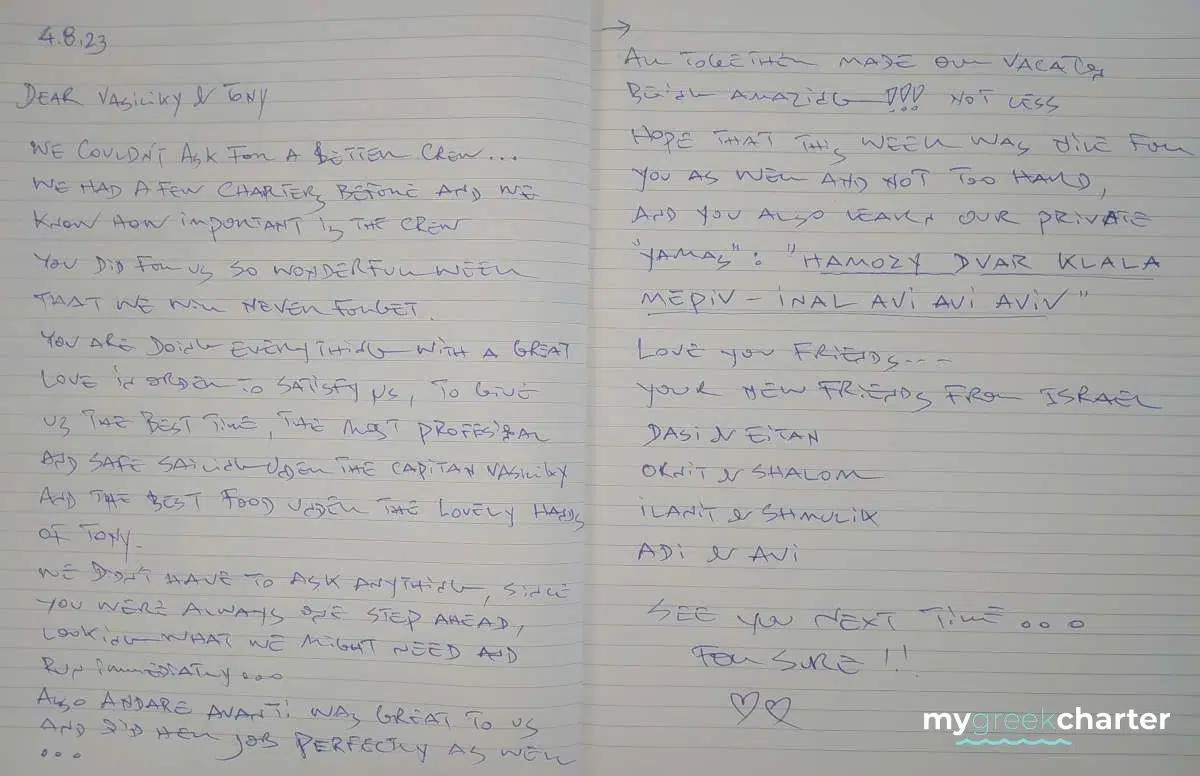 4.8.23
DEAR VASILIKY & TONY
WE COULDN'T ASK FOR A BETTER CREW...
WE HAD A FEW CHARTERS BEFORE AND WE
KNOW HOW IMPORTANT IS THE CREW
YOU DID FOR US SO WONDERFUL WEEK
THAT WE WILL NEVER FORGET.
YOU ARE DOING EVERYTHING WITH A GREAT
LOVE IN ORDER TO SATISFY US, TO GIVE
US THE BEST TIME, THE MOST PROFESIONAL
AND SAFE SAILING UDER THE CAPITAN VASILIKY
AND THE BEST FOOD UNDER THE LOVELY HANDS
OF TONY.
WE DIDN'T HAVE TO ASK ANYTHING, SINCE
YOU WERE ALWAYS ONE STEP AHEAD,
LOOKING WHAT WE MIGHT NEED AND
RUN IMMEDIATLY...
ALSO ANDARE AVANTI WAS GREAT TO US
AND DID HER JOB PERFECTLY AS WELL
...
→
ALL TOGETHER MADE OUR VACATION
BEING AMAZING !!! NOT LESS
HOPE THAT THIS WEEK WAS NICE FOR
YOU AS WELL AND NOT TOO HARD,
AND YOU ALSO LEARN OUR PRIVATE
"YAMAS": "HAMOZY DVAR KLALA
MEPIV - INAL AVI AVI AVIV"
LOVE YOU FRIENDS...
YOUR NEW FRIENDS FROM ISRAEL
DASI & EITAN
ORNIT & SHALOM
ILANIT & SHMULIK
ADI & AVI
SEE YOU NEXT TIME...
FOR SURE!!
mygreekcharter